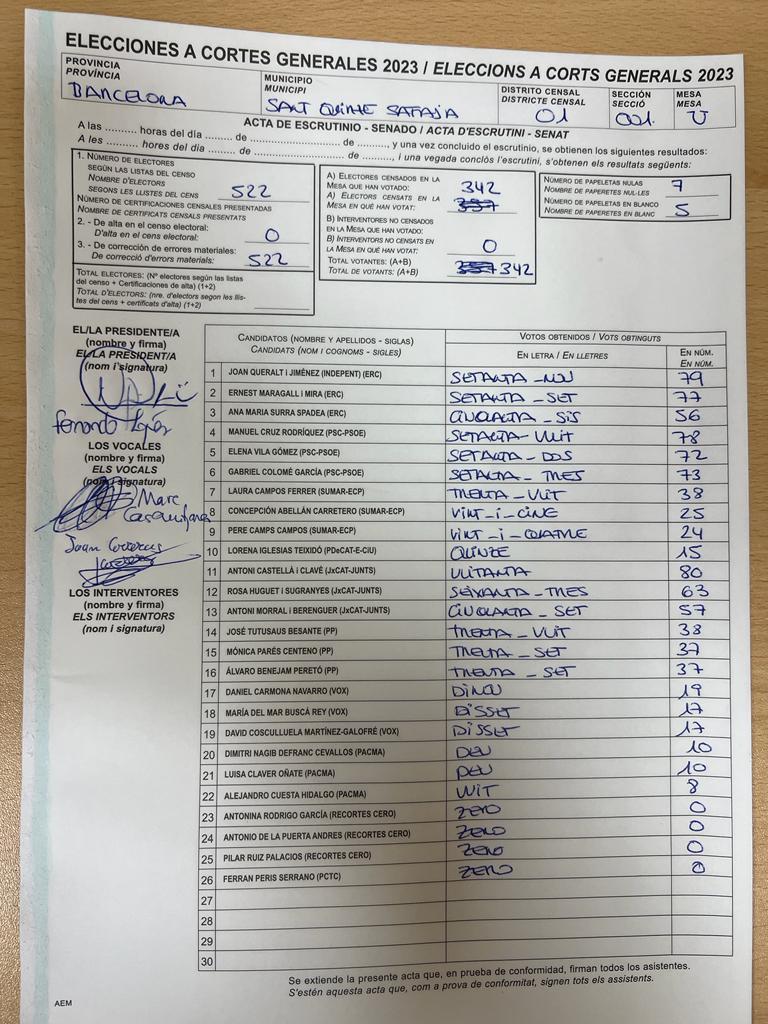 ELECCIONES A CORTES GENERALES 2023 / ELECCIONS A CORTS GENERALS 2023
PROVINCIA
PROVÍNCIA
BARCELONA
MUNICIPIO
MUNICIPI
SANT QUIRZE SAFAJA
DISTRITO CENSAL
DISTRICTE CENSAL
01
SECCIÓN
SECCIÓ
001
MESA
MESA
U
ACTA DE ESCRUTINIO - SENADO / ACTA D'ESCRUTINI - SENAT
A las .......... horas del día ........ de .............................. de .........., y una vez concluido el escrutinio, se obtienen los siguientes resultados:
A les .......... hores del día ........ de .............................. de .........., i una vegada conclòs l'escrutini, s'obtenen els resultats següents:
1. NÚMERO DE ELECTORES
SEGÚN LAS LISTAS DEL CENSO
NOMBRE D'ELECTORS
SEGONS LES LLISTES DEL CENS 522
NÚMERO DE CERTIFICACIONES CENSALES PRESENTADAS
NOMBRE DE CERTIFICATS CENSALS PRESENTATS
2. - De alta en el censo electoral:
D'alta en el cens electoral: 0
3. - De corrección de errores materiales:
De correcció d'errors materials: 522
TOTAL ELECTORES: (Nº electores según las listas
del censo + Certificaciones de alta) (1+2)
TOTAL D'ELECTORS: (nre. d'electors segon les llis-
tes del cens + certificats d'alta) (1+2)
A) ELECTORES CENSADOS EN LA
MESA QUE HAN VOTADO: 342
A) ELECTORS CENSATS EN LA
MESA EN QUÈ HAN VOTAT:
B) INTERVENTORES NO CENSADOS
EN LA MESA QUE HAN VOTADO:
B) INTERVENTORS NO CENSATS EN
LA MESA EN QUÈ HAN VOTAT: 0
TOTAL VOTANTES: (A+B)
TOTAL DE VOTANTS: (A+B) 342
NÚMERO DE PAPELETAS NULAS
NOMBRE DE PAPERETES NUL·LES 7
NÚMERO DE PAPELETAS EN BLANCO
NOMBRE DE PAPERETES EN BLANC 5
EL/LA PRESIDENTE/A
(nombre y firma)
EL/LA PRESIDENT/A
(nom i signatura)
Fernando López
LOS VOCALES
(nombre y firma)
ELS VOCALS
(nom i signatura)
Marc
Joan
LOS INTERVENTORES
(nombre y firma)
ELS INTERVENTORS
(nom i signatura)
CANDIDATOS (NOMBRE Y APELLIDOS - SIGLAS)
CANDIDATS (NOM I COGNOMS - SIGLES)
VOTOS OBTENIDOS / VOTS OBTINGUTS
EN LETRA / EN LLETRES
EN NÚM.
EN NÚM.
1 JOAN QUERALT i JIMÉNEZ (INDEPENT) (ERC) SETANTA - NOU 79
2 ERNEST MARAGALL i MIRA (ERC) SETANTA - SET 77
3 ANA MARIA SURRA SPADEA (ERC) CINQUANTA - SIS 56
4 MANUEL CRUZ RODRÍQUEZ (PSC-PSOE) SETANTA - VUIT 78
5 ELENA VILA GÓMEZ (PSC-PSOE) SETANTA - DOS 72
6 GABRIEL COLOMÉ GARCÍA (PSC-PSOE) SETANTA - TRES 73
7 LAURA CAMPOS FERRER (SUMAR-ECP) TRENTA - VUIT 38
8 CONCEPCIÓN ABELLÁN CARRETERO (SUMAR-ECP) VINT - i - CINC 25
9 PERE CAMPS CAMPOS (SUMAR-ECP) VINT - i - QUATRE 24
10 LORENA IGLESIAS TEIXIDÓ (PDeCAT-E-CiU) QUINZE 15
11 ANTONI CASTELLÀ i CLAVÉ (JxCAT-JUNTS) VUITANTA 80
12 ROSA HUGUET i SUGRANYES (JxCAT-JUNTS) SEIXANTA - TRES 63
13 ANTONI MORRAL i BERENGUER (JxCAT-JUNTS) CINQUANTA - SET 57
14 JOSÉ TUTUSAUS BESANTE (PP) TRENTA - VUIT 38
15 MÓNICA PARÉS CENTENO (PP) TRENTA - SET 37
16 ÁLVARO BENEJAM PERETÓ (PP) TRENTA - SET 37
17 DANIEL CARMONA NAVARRO (VOX) DINOU 19
18 MARÍA DEL MAR BUSCÁ REY (VOX) DISSET 17
19 DAVID COSCULLUELA MARTÍNEZ-GALOFRÉ (VOX) DISSET 17
20 DIMITRI NAGIB DEFRANC CEVALLOS (PACMA) DEU 10
21 LUISA CLAVER OÑATE (PACMA) DEU 10
22 ALEJANDRO CUESTA HIDALGO (PACMA) VUIT 8
23 ANTONINA RODRIGO GARCÍA (RECORTES CERO) ZERO 0
24 ANTONIO DE LA PUERTA ANDRES (RECORTES CERO) ZERO 0
25 PILAR RUIZ PALACIOS (RECORTES CERO) ZERO 0
26 FERRAN PERIS SERRANO (PCTC) ZERO 0
27
28
29
30
Se extiende la presente acta que, en prueba de conformidad, firman todos los asistentes.
S'estén aquesta acta que, com a prova de conformitat, signen tots els assistents.
AEM